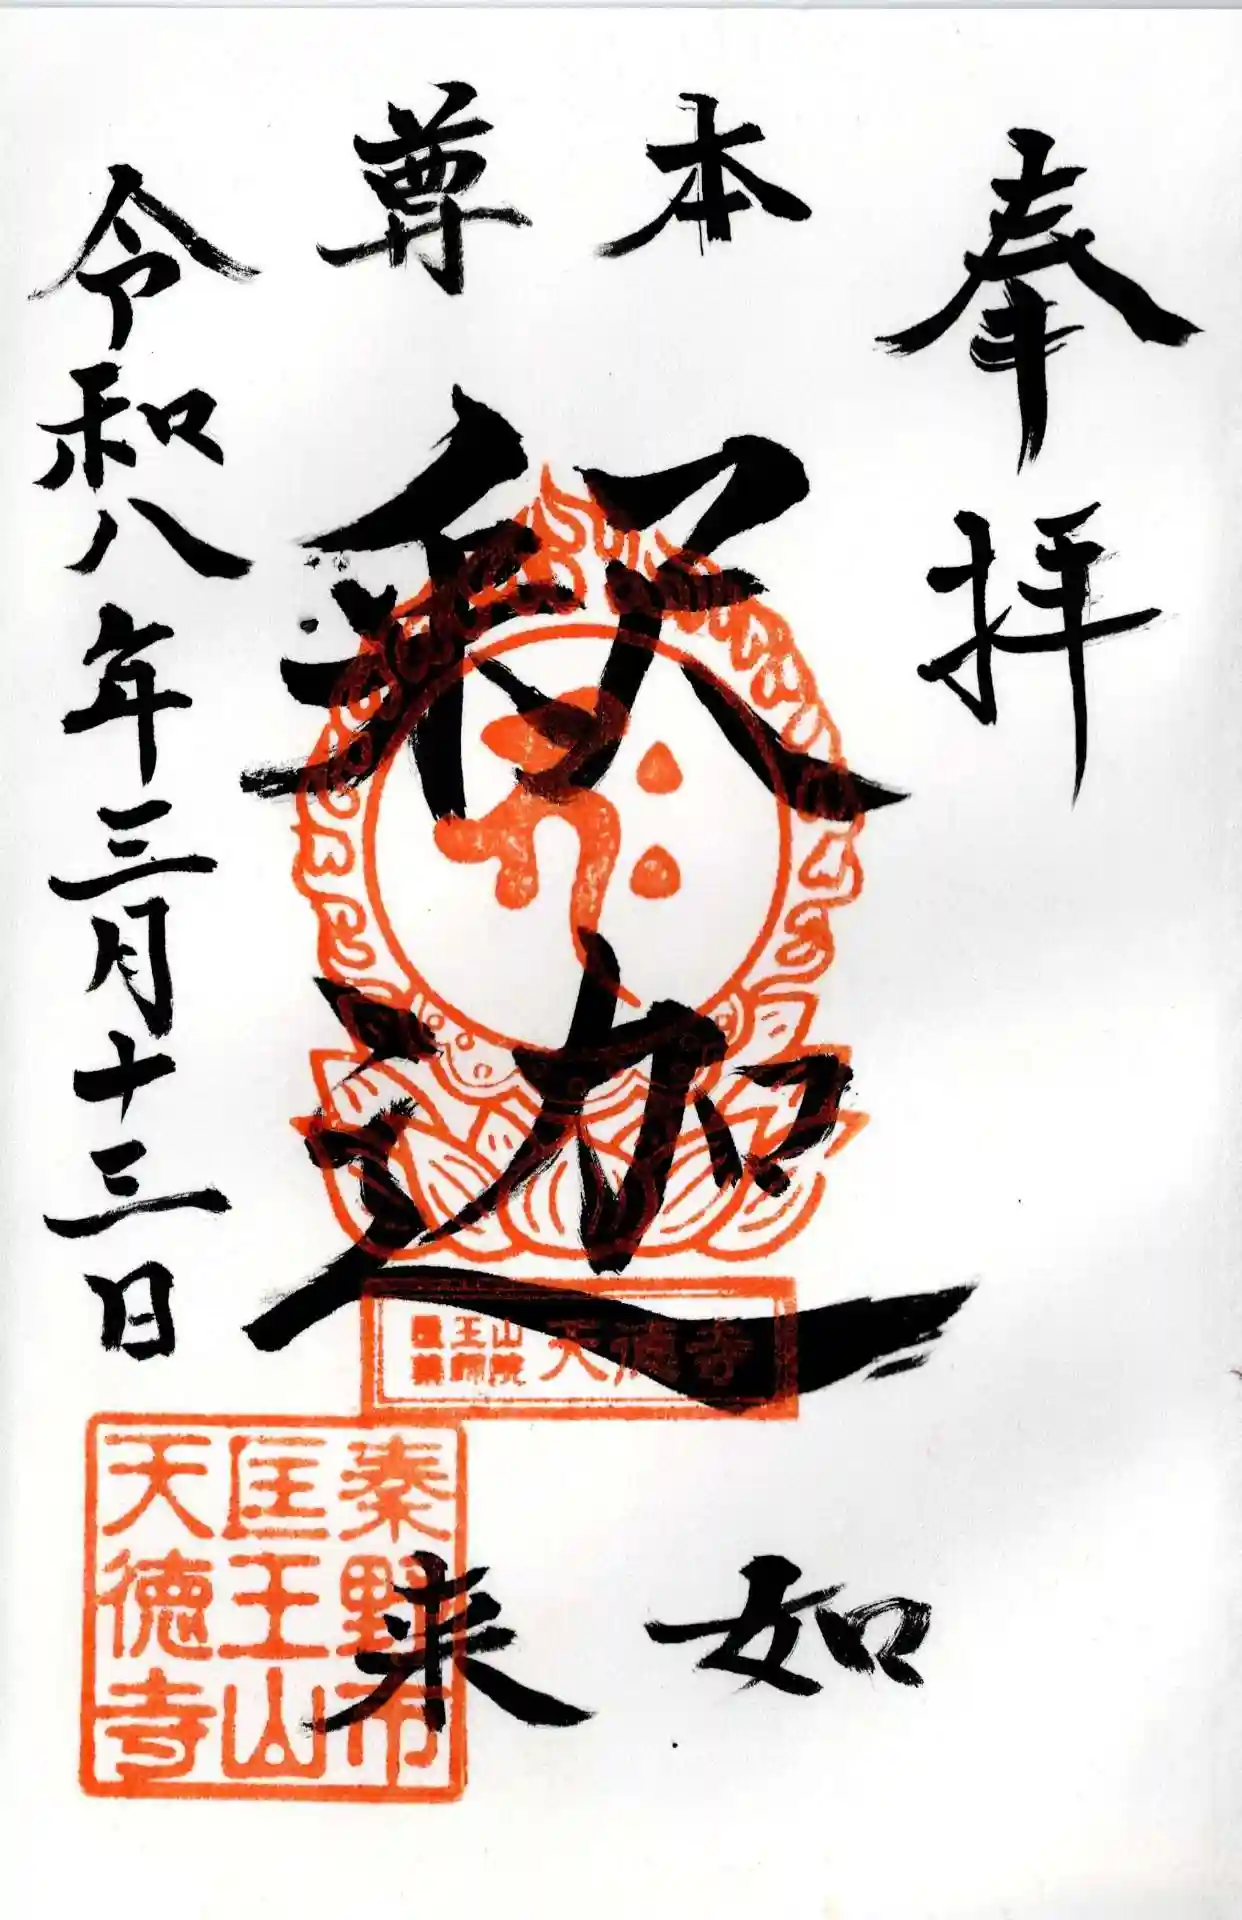 奉拝
本尊
釈迦
如来
令和八年三月十三日
王山 天徳寺
秦野市
匡王山
天徳寺